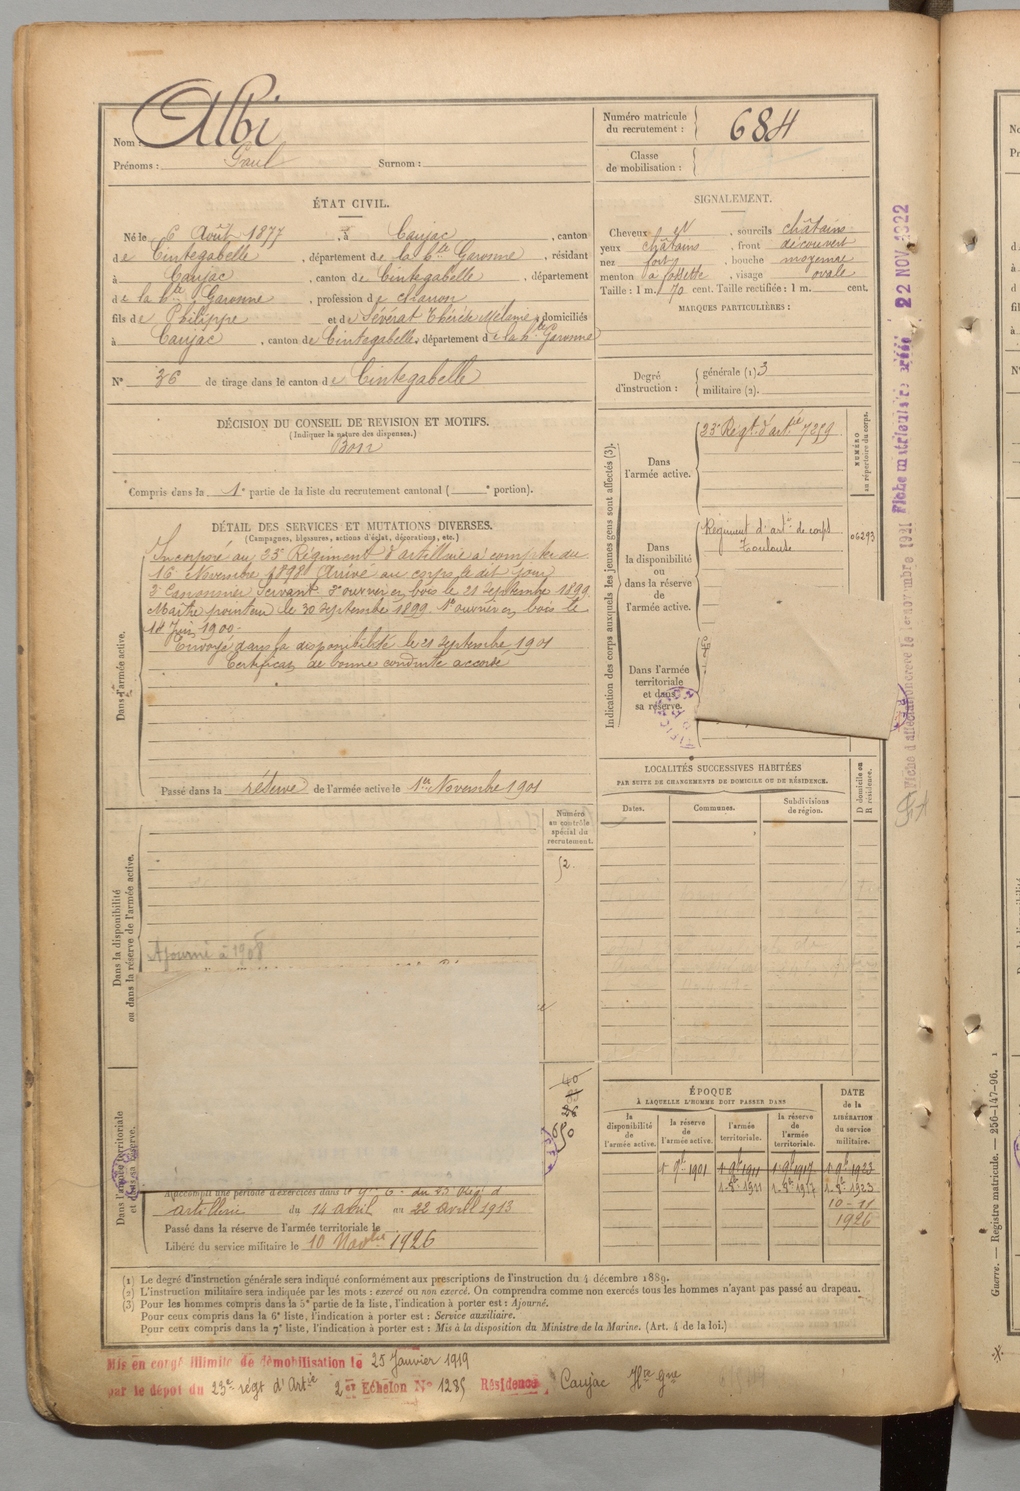 Nom : Albi
Prénoms : Paul Surnom :
Numéro matricule du recrutement : 684
Classe de mobilisation :
ÉTAT CIVIL.
Né le 6 Août 1877, à Caujac, canton
de Cintegabelle, département de la Hte Garonne, résidant
à Caujac, canton de Cintegabelle, département
de la Hte Garonne, profession de charron
fils de Philippe et de Sévérat Thérèse Mélanie, domiciliés
à Caujac, canton de Cintegabelle, département de la Hte Garonne
N° 36 de tirage dans le canton de Cintegabelle
SIGNALEMENT.
Cheveux et, sourcils châtains
yeux châtains, front découvert
nez fort, bouche moyenne
menton à fossette, visage ovale
Taille : 1 m. 70 cent. Taille rectifiée : 1 m. cent.
MARQUES PARTICULIÈRES :
Degré d'instruction : générale (1) 3
militaire (2).
DÉCISION DU CONSEIL DE REVISION ET MOTIFS.
(Indiquer la nature des dispenses.)
Bon
Compris dans la 1e partie de la liste du recrutement cantonal ( e portion).
DÉTAIL DES SERVICES ET MUTATIONS DIVERSES.
(Campagnes, blessures, actions d'éclat, décorations, etc.)
Dans l'armée active.
Incorporé au 23e Régiment d'artillerie à compter du
16 Novembre 1898 Arrivé au corps le dit jour
2e Canonnier Servant. 2e ouvrier en bois le 21 septembre 1899.
Maître pointeur le 30 septembre 1899. 1er ouvrier en bois le
18 Juin 1900.
Envoyé dans la disponibilité le 21 septembre 1901
Certificat de bonne conduite accordé
Passé dans la réserve de l'armée active le 1er Novembre 1901
Indication des corps auxquels les jeunes gens sont affectés (3).
NUMÉRO au répertoire du corps.
Dans l'armée active.
23e Régt d'artie 7259
Dans la disponibilité ou dans la réserve de l'armée active.
Régiment d'artie de corps
Toulouse
06293
Dans l'armée territoriale et dans sa réserve.
22 NOV. 1922
LOCALITÉS SUCCESSIVES HABITÉES
PAR SUITE DE CHANGEMENTS DE DOMICILE OU DE RÉSIDENCE.
Dates. Communes. Subdivisions de région. D domicile ou R résidence.
Dans la disponibilité ou dans la réserve de l'armée active.
Numéro au contrôle spécial du recrutement.
Ajourné à 1908
Dans l'armée territoriale et dans sa réserve.
40
A accompli une période d'exercices dans le 9e G. du 23 Régt d'
artillerie du 14 avril au 22 avril 1913
Passé dans la réserve de l'armée territoriale le
Libéré du service militaire le 10 Novbre 1926
ÉPOQUE
À LAQUELLE L'HOMME DOIT PASSER DANS
DATE de la LIBÉRATION du service militaire.
la disponibilité de l'armée active. la réserve de l'armée active. l'armée territoriale. la réserve de l'armée territoriale.
1er 9bre 1901 1er 9bre 1911 1er 9bre 1917 1er 9bre 1923
10-11
1926
(1) Le degré d'instruction générale sera indiqué conformément aux prescriptions de l'instruction du 4 décembre 1889.
(2) L'instruction militaire sera indiquée par les mots : exercé ou non exercé. On comprendra comme non exercés tous les hommes n'ayant pas passé au drapeau.
(3) Pour les hommes compris dans la 5e partie de la liste, l'indication à porter est : Ajourné.
Pour ceux compris dans la 6e liste, l'indication à porter est : Service auxiliaire.
Pour ceux compris dans la 7e liste, l'indication à porter est : Mis à la disposition du Ministre de la Marine. (Art. 4 de la loi.)
Mis en congé illimité de démobilisation le 25 Janvier 1919
par le dépôt du 23e régt d'Artie 2er Echelon N° 1285 Résidence, Caujac Hte Gne
Guerre. — Registre matricule. — 256-147-96. 1